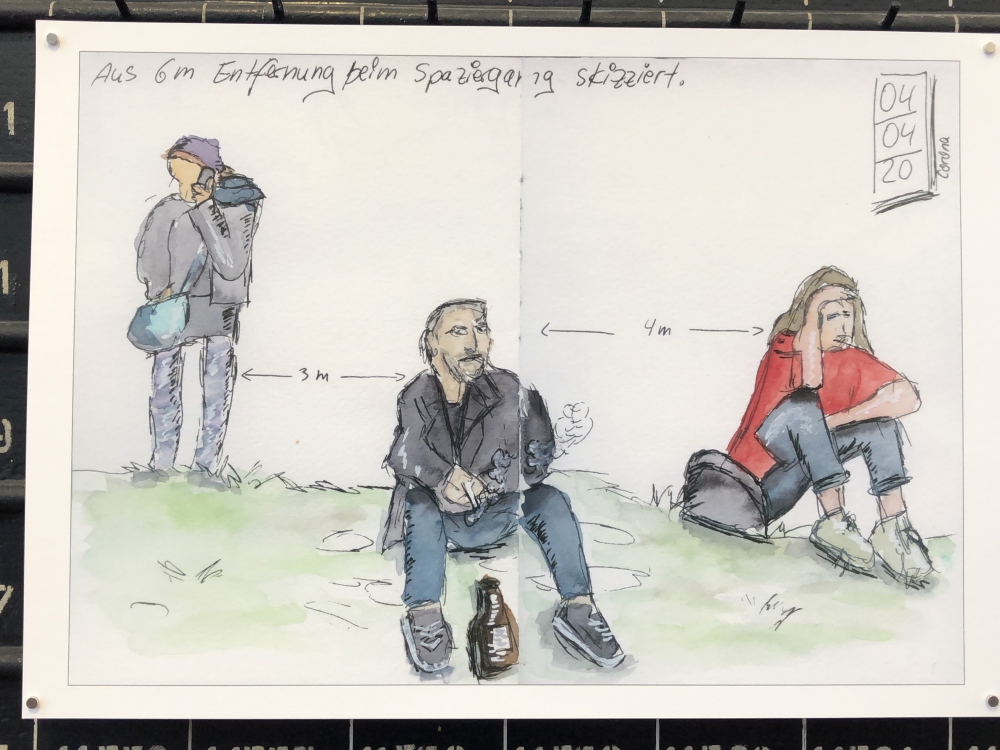 Aus 6m Entfernung beim Spaziergang skizziert.
04
04
20
Corona
3m
4m
1
1
9
7